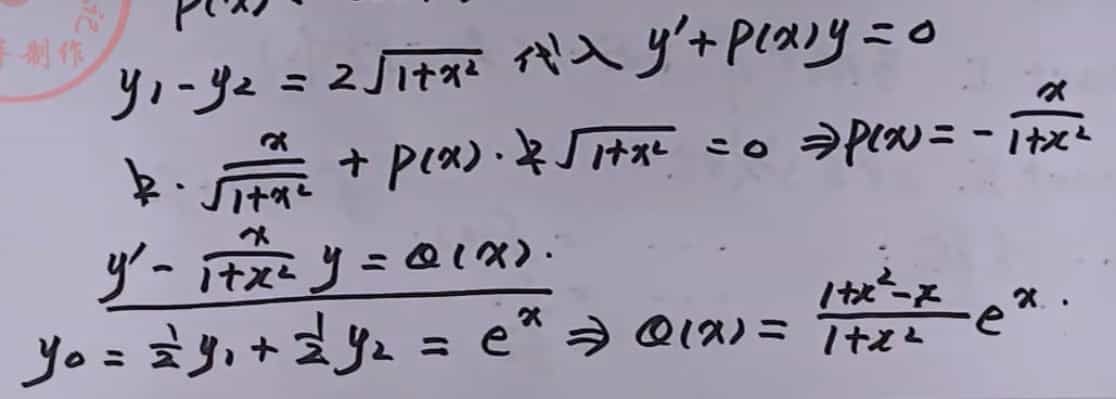 p(x)
记
制作
y₁-y₂ = 2√(1+x²) 代入 y'+p(x)y=0
2·x/√(1+x²) + p(x)·2√(1+x²) = 0 ⇒ p(x) = -x/(1+x²)
y' - x/(1+x²) y = Q(x).
y₀ = ½y₁ + ½y₂ = eˣ ⇒ Q(x) = (1+x²-x)/(1+x²) eˣ.